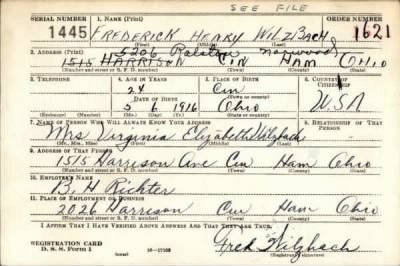 SEE FILE
SERIAL NUMBER 1. NAME (Print) ORDER NUMBER
1445 FREDERICK HENRY WILZBACH 1621
(First) (Middle) (Last)
5206 Ralston Norwood
2. ADDRESS (Print)
1515 HARRISON CIN HAM OHIO
(Number and street or R. F. D. number) (Town) (County) (State)
3. TELEPHONE 4. AGE IN YEARS 5. PLACE OF BIRTH 6. COUNTRY OF CITIZENSHIP
24 Cin
DATE OF BIRTH (Town or county)
5 6 1916 Ohio USA
(Exchange) (Number) (Mo.) (Day) (Yr.) (State or country)
7. NAME OF PERSON WHO WILL ALWAYS KNOW YOUR ADDRESS 8. RELATIONSHIP OF THAT PERSON
Mrs Virginia Elizabeth Wilzbach
(Mr., Mrs., Miss) (First) (Middle) (Last)
9. ADDRESS OF THAT PERSON
1515 Harrison Ave Cin Ham Ohio
(Number and street or R. F. D. number) (Town) (County) (State)
10. EMPLOYER'S NAME
B. H Richter
11. PLACE OF EMPLOYMENT OR BUSINESS
2026 Harrison Cin Ham Ohio
(Number and street or R. F. D. number) (Town) (County) (State)
I AFFIRM THAT I HAVE VERIFIED ABOVE ANSWERS AND THAT THEY ARE TRUE.
REGISTRATION CARD
D. S. S. Form 1 (over) 16—17105 Fred Wilzbach
(Registrant's signature)